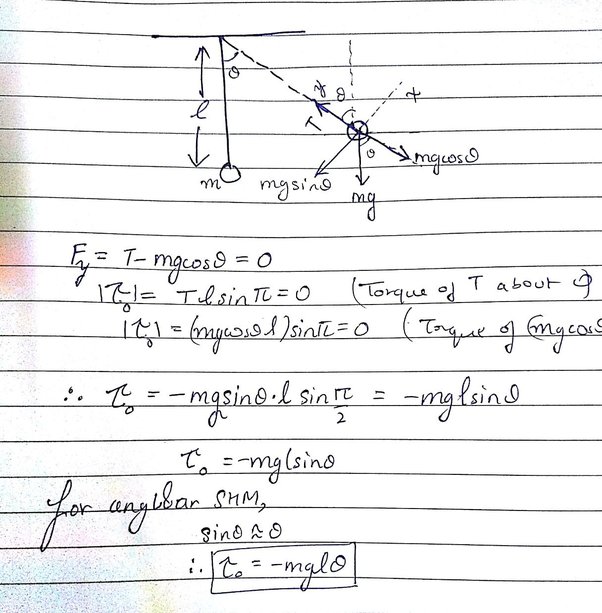 θ
l
m
y
θ
x
T
θ
mgcosθ
mgsinθ
mg
F_y = T - mgcosθ = 0
|τ_o| = Tl sin π = 0 (Torque of T about
|τ_o| = (mgcosθ l) sin π = 0 (Torque of (mgcosθ
∴ τ_o = -mgsinθ·l sin π/2 = -mglsinθ
τ_o = -mglsinθ
for angular SHM,
sinθ ≈ θ
∴ τ_o = -mglθ